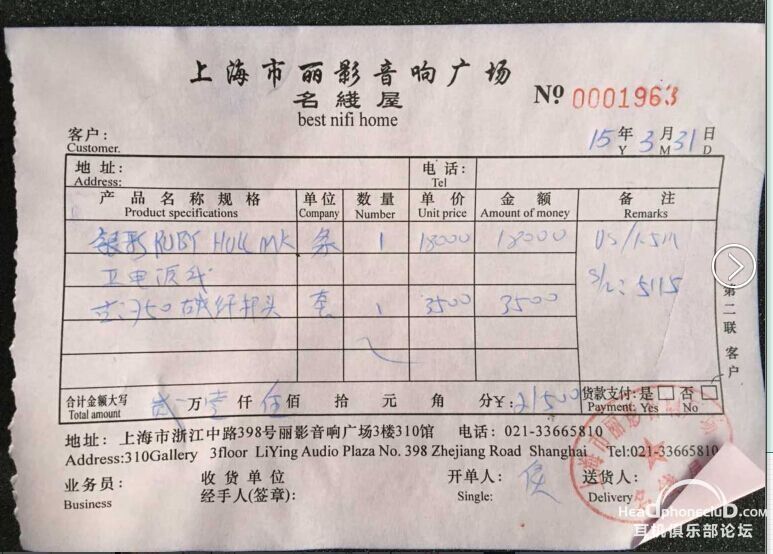 上海市丽影音响广场
名綫屋
best nifi home
Nº 0001963
客户:
Customer.
15 年 3 月 31 日
Y M D
地址: 电话:
Address: Tel
产品名称规格 单位 数量 单价 金额 备注
Product specifications Company Number Unit price Amount of money Remarks
银彩 RUBY HULL MK 条 1 18000 18000 US/1.5M
电源线 S/N: 5115
350碳纤插头 套 1 3500 3500
第二联 客户
合计金额大写 贰万壹仟伍佰 拾 元 角 分¥: 21500 货款支付: 是 否
Total amount Payment: Yes No
地址: 上海市浙江中路398号丽影音响广场3楼310馆 电话: 021-33665810
Address:310Gallery 3floor LiYing Audio Plaza No. 398 Zhejiang Road Shanghai Tel:021-33665810
业务员: 收货单位 开单人: 侯 送货人:
Business 经手人(签章): Single: Delivery
上海市丽影
名綫屋
HeadphonecluD.com
耳机俱乐部论坛